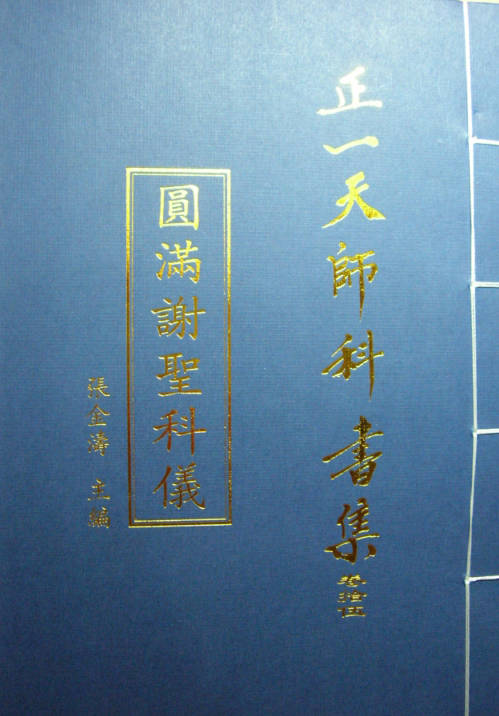 正一天師科書集
卷拾伍
圓滿謝聖科儀
張金濤 主編